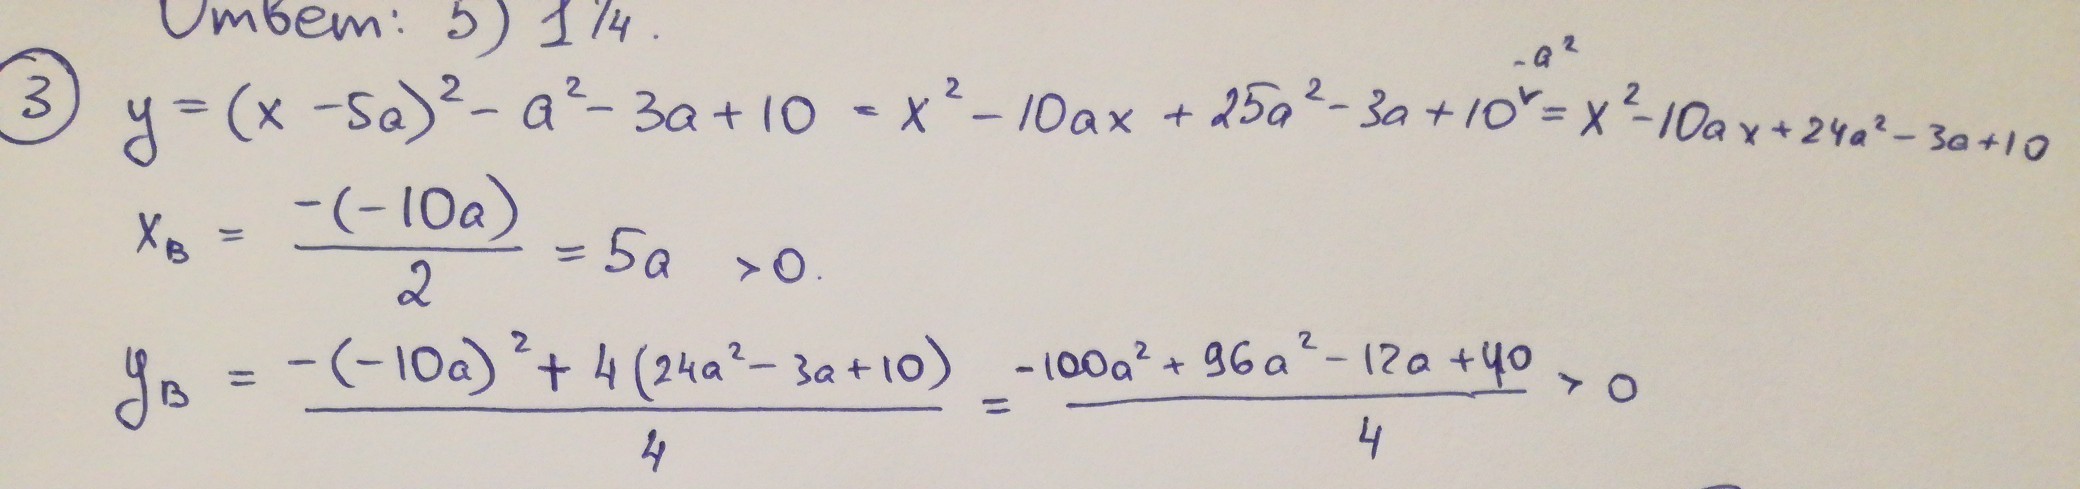 Ответ: 5) 1 1/4.
3 y = (x - 5a)² - a² - 3a + 10 = x² - 10ax + 25a² - 3a + 10 - a² = x² - 10ax + 24a² - 3a + 10
xв = -(-10a) / 2 = 5a > 0.
yв = -(-10a)² + 4(24a² - 3a + 10) / 4 = -100a² + 96a² - 12a + 40 / 4 > 0